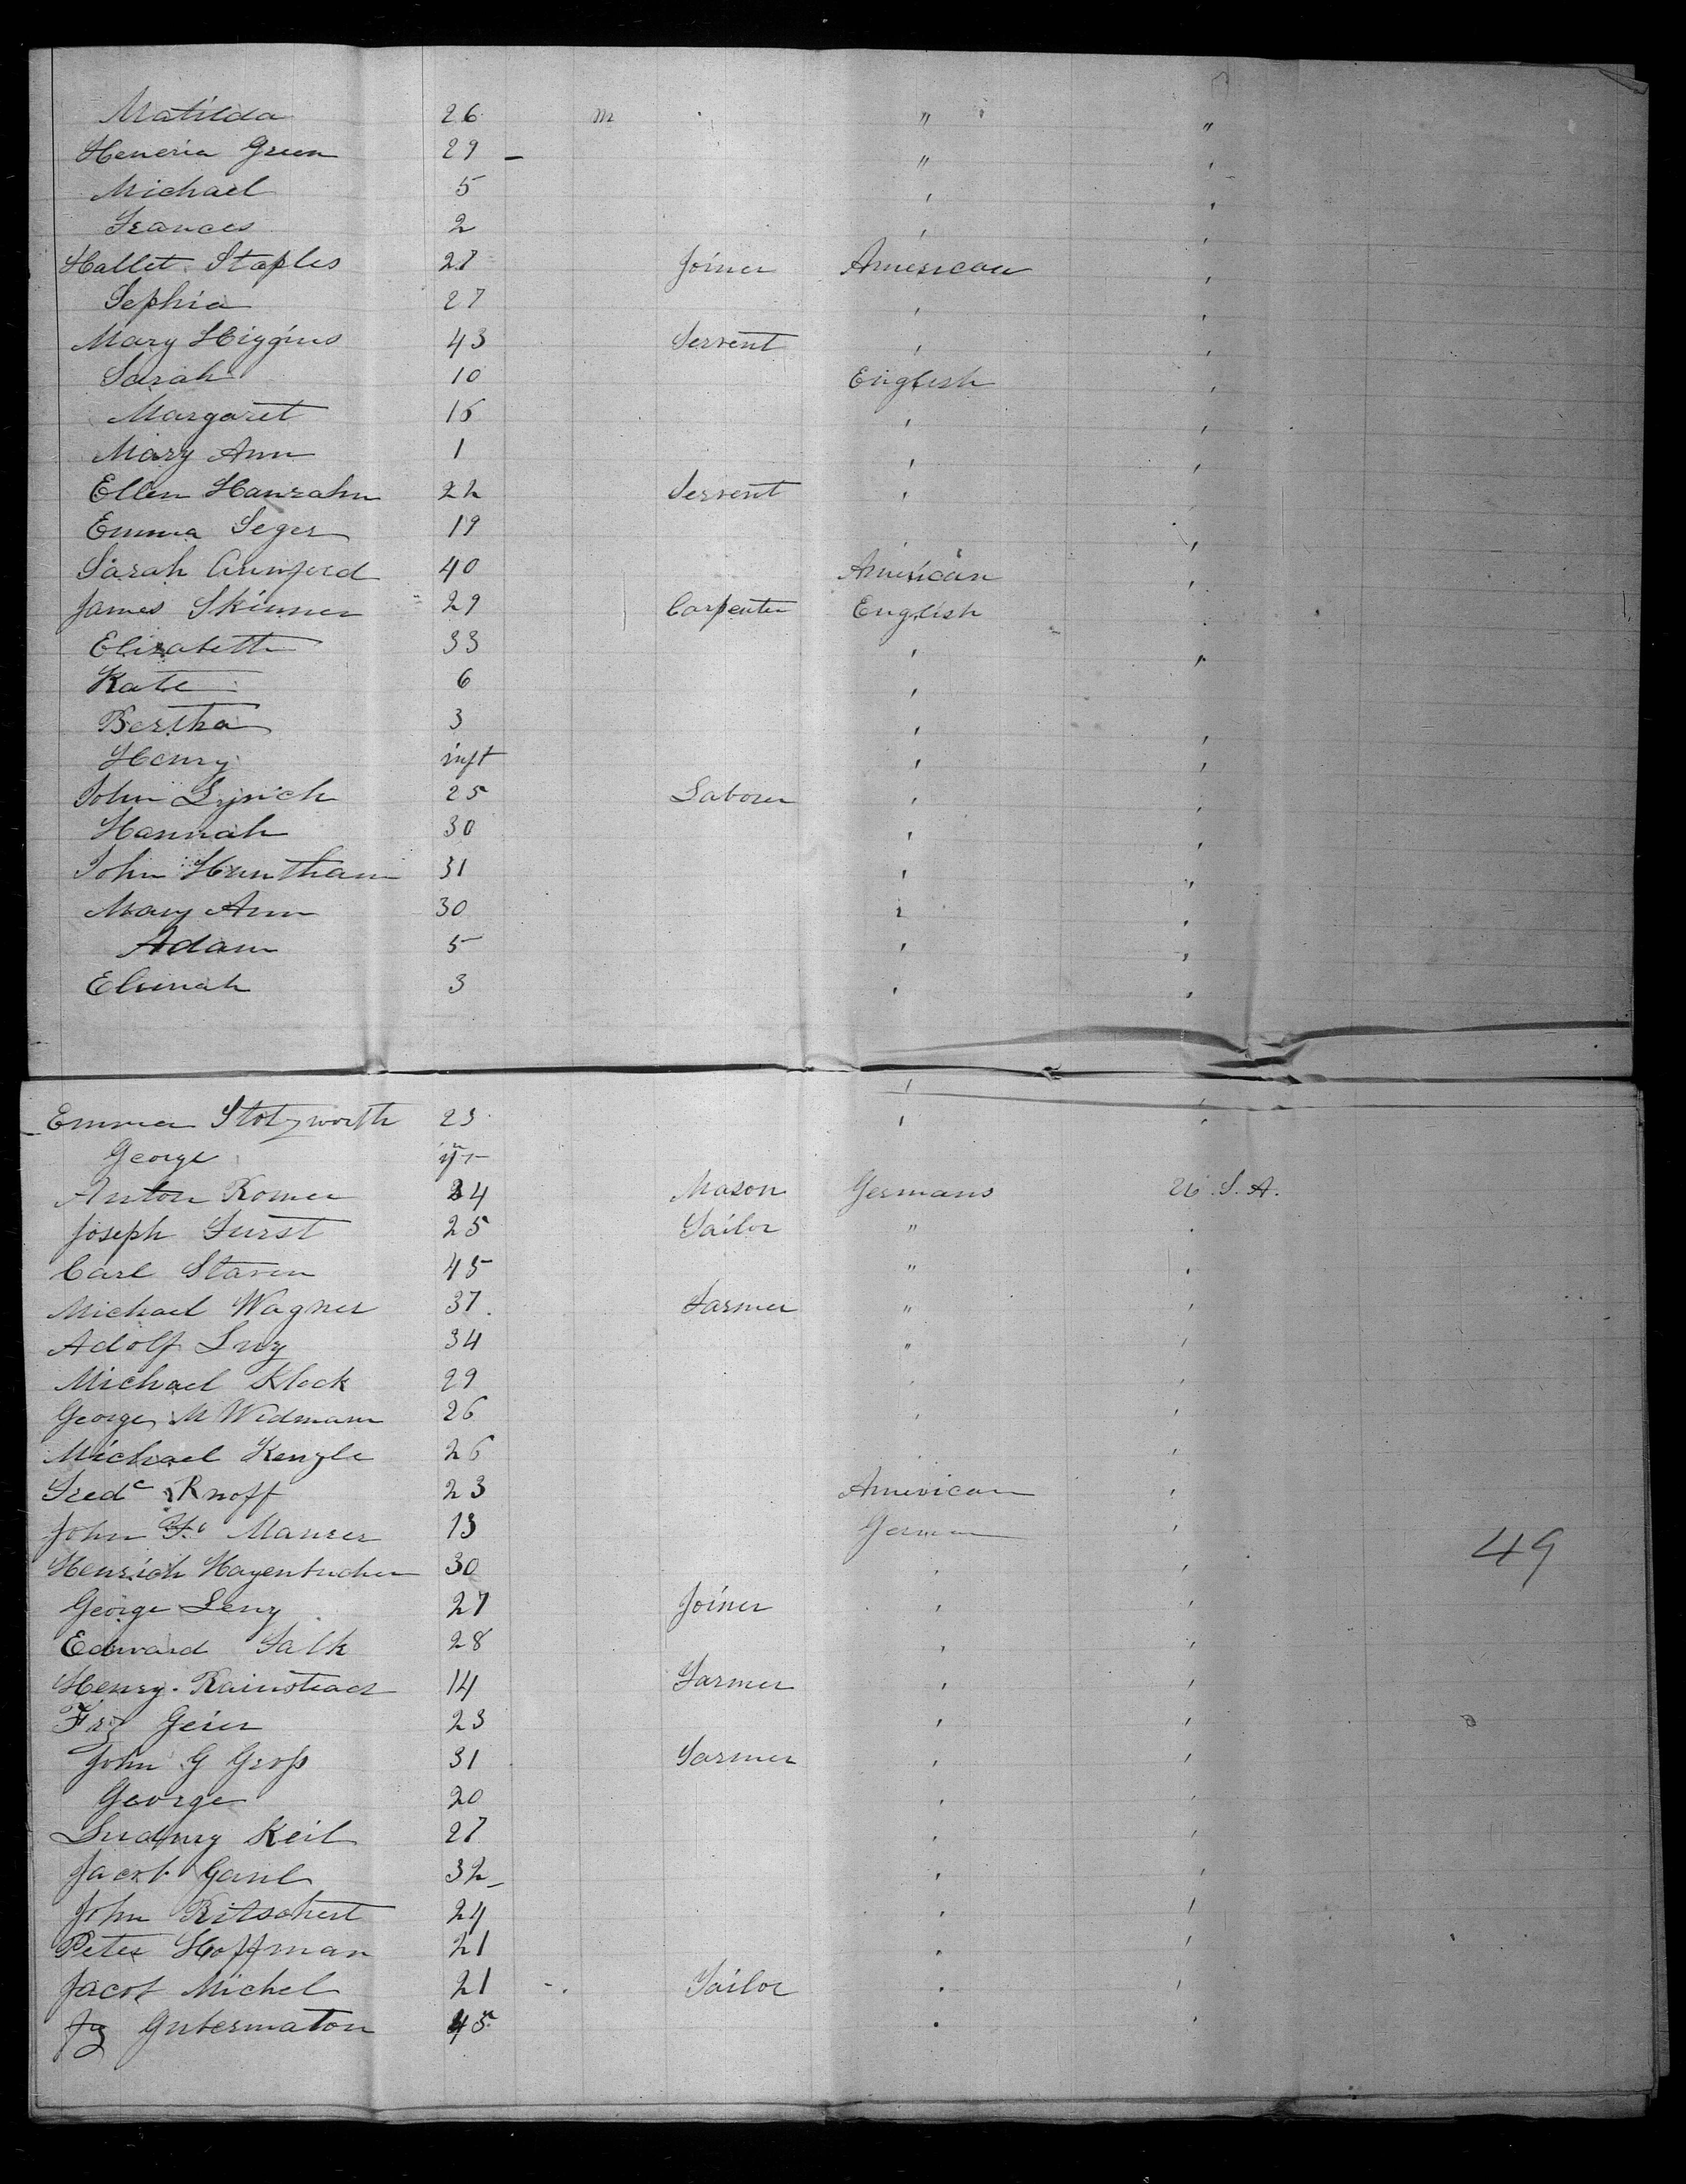 Matilda 26 m " "
Heneria Green 29 – " '
Michael 5 ' '
Frances 2 ' '
Hallet Staples 27 Joiner American '
Sephia 27 ' '
Mary Higgins 43 Servent ' '
Sarah 10 English '
Margaret 16 ' '
Mary Ann 1 ' '
Ellen Hanrahn 22 Servent '
Emma Seger 19 ' '
Sarah 40 American '
James Skinner 29 Carpenter English
Elizabeth 33 ' '
Kate 6 '
Bertha 3 ' '
Henry inft ' '
John Lynich 25 Laborer ' '
Hannah 30 ' '
John Huntham 31 ' "
Mary Ann 30 ' '
Adam 5 ' '
Elunah 3 ' '
Emma Stotzworth 23 ' '
George
Anton Romer 24 Mason Germans U.S.A.
Joseph Furst 25 Tailor " '
Carl Staven 45 " '
Michael Wagner 37. Farmer " '
Adolf Luz 34 " '
Michael Klock 29 ' '
George M Widmann 26 ' '
Michael Kengle 26 '
Fredc Knoff 23 American '
John Maurer 13 German '
Henrich 30 ' '
George Lenz 27 Joiner ' '
Edward Falk 28 ' '
Henry Rainstead 14 Farmer ' '
Frz Geier 23 ' '
John G Gross 31 Farmer ' '
George 20 ' '
Ludwig Keil 27 ' '
Jacob Ganl 32 ' '
John Ritschert 24 ' '
Peter Hoffman 21 ' '
Jacob Michel 21 Tailor ' '
Gutermaton 45 ' '
49